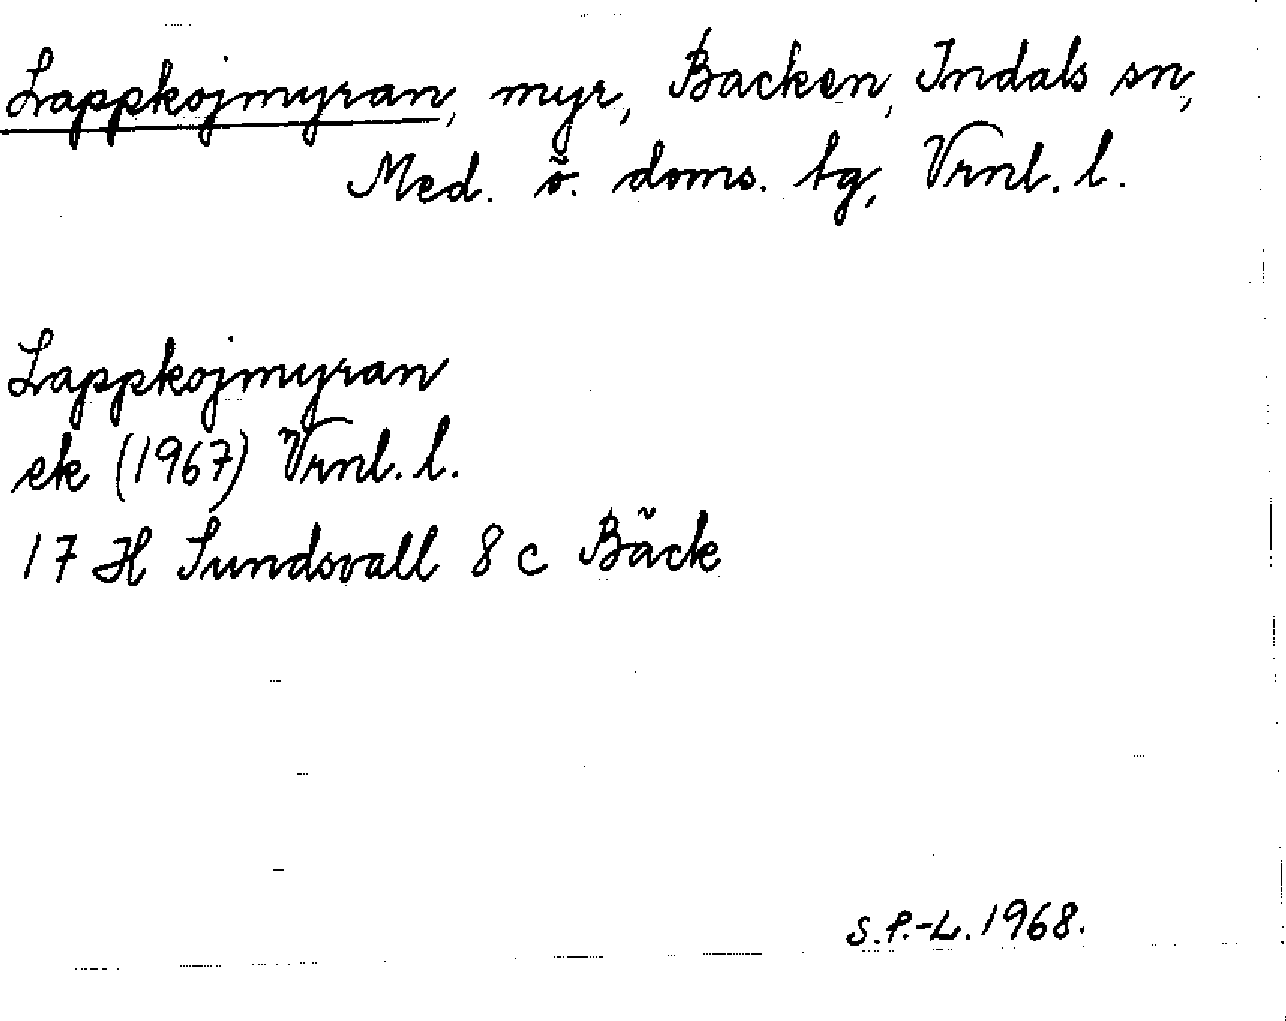 Lappkojmyran, myr, Backen, Indals sn,
Med. ö. doms. tg, Vrnl. l.
Lappkojmyran
ek (1967) Vrnl. l.
17 H Sundsvall 8 c Bäck
S.P.-L. 1968.